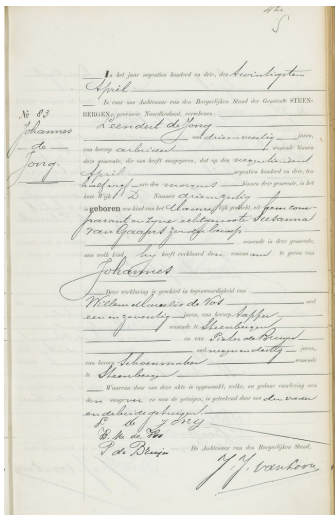 5
No 83
Johannes
de
Jong.
In het jaar negentien honderd en drie, den twintigsten
April
is voor ons Ambtenaar van den Burgerlijken Stand der Gemeente STEEN-
BERGEN, provincie Noordbrabant, verschenen:
Leendert de Jong
oud drieenveertig jaren,
van beroep arbeider, wonende binnen
deze gemeente, die ons heeft aangegeven, dat op den negentienden
April negentien honderd en drie, ten
half vijf ure des morgens binnen deze gemeente, in het
huis Wijk D. Nummer
is geboren een kind van het Mannelijk geslacht, uit hem com-
parant en zijne echtgenoote Suzanna
van Gaapst zonder beroep
wonende in deze gemeente,
aan welk kind hij heeft verklaard den voornaam te geven van
Johannes
Deze verklaring is geschied in tegenwoordigheid van
Willem Marelis de Vos oud
een en zeventig jaren, van beroep tapper
wonende te Steenbergen
en van Pieter de Bruijn
oud negenendertig jaren,
van beroep Schoenmaker wonende
te Steenbergen
Waarvan door ons deze akte is opgemaakt, welke, na gedane voorlezing aan
den aangever en aan de getuigen, is geteekend door ons den vader
en de beide getuigen
L de Jong
de Vos
P de Bruijn
De Ambtenaar van den Burgerlijken Stand,
J. J. van Loon